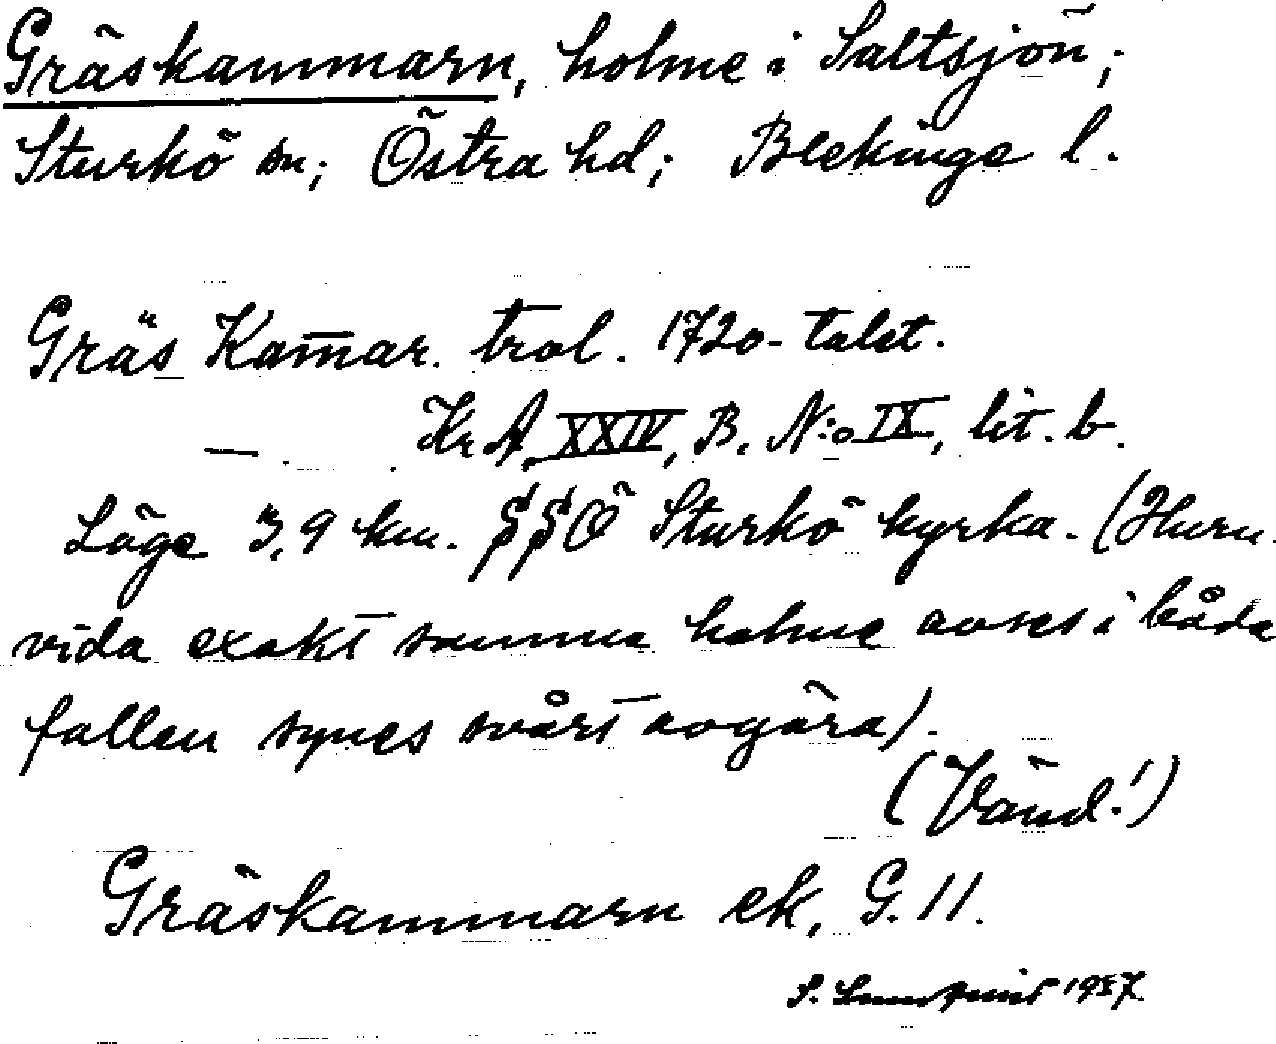 Gräskammarn, holme i Saltsjön;
Sturkö sn; Östra hd; Blekinge l.
Gräs Kam̅ar. trol. 1720-talet.
— . . Kr A, XXIV, B. N:o IX, lit. b.
Läge 3,9 km. SSÖ Sturkö kyrka. (Huru-
vida exakt samma holme avses i båda
fallen synes svårt avgöra).
(Vänd!)
Gräskammarn ek, G. 11.
S. 1957.